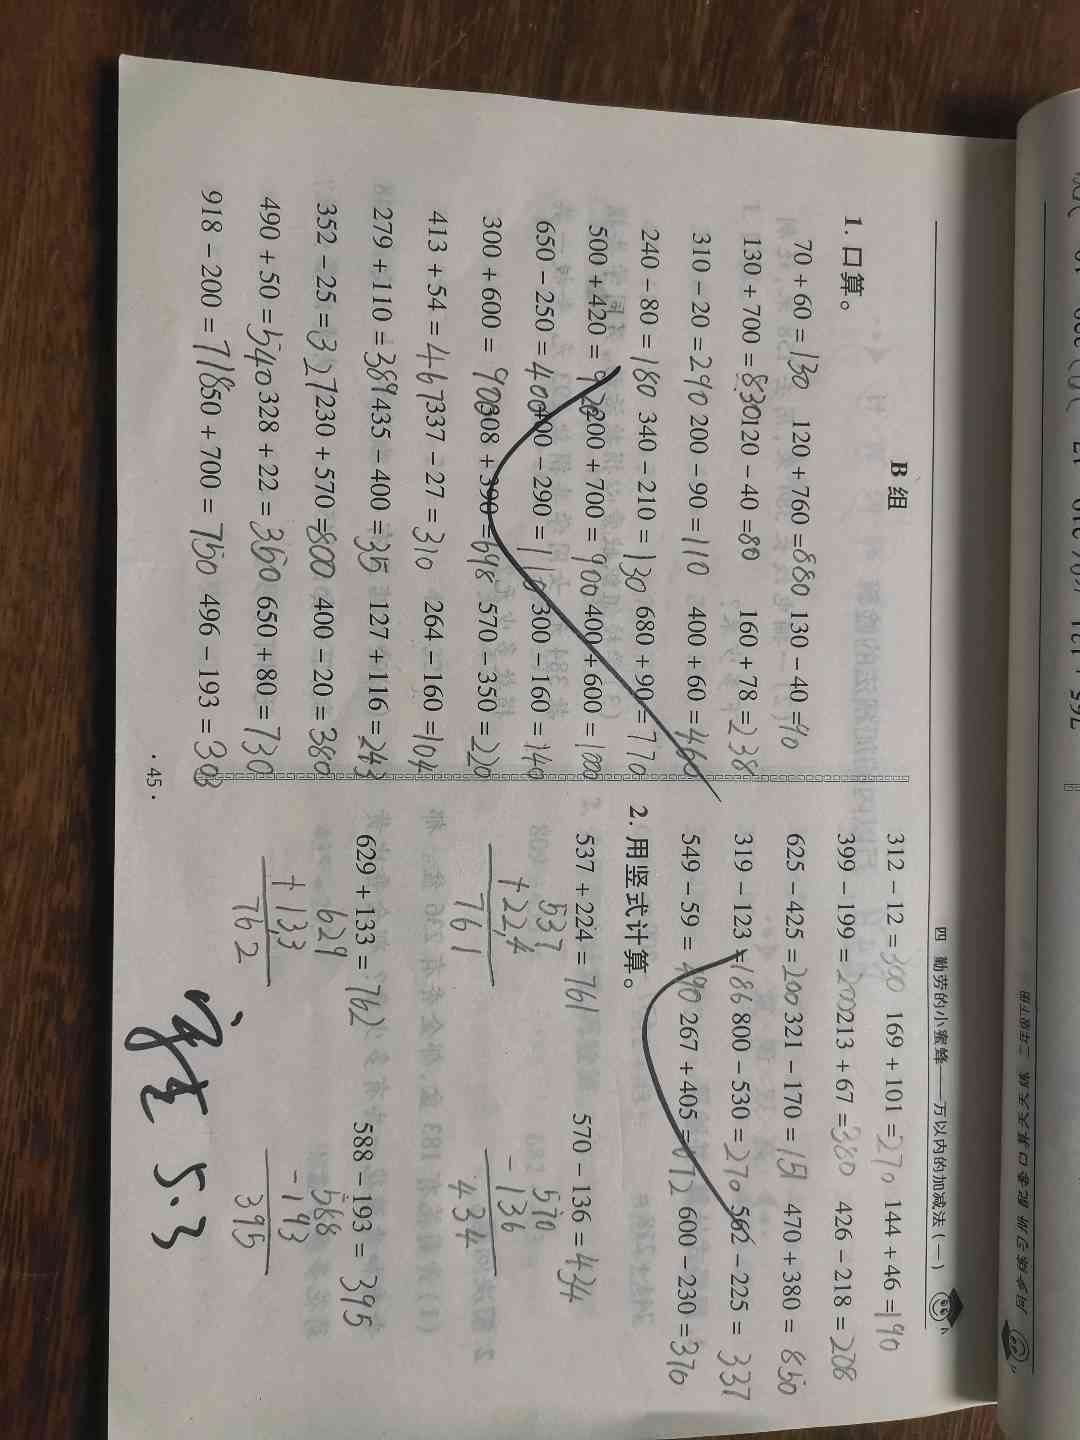 四 勤劳的小蜜蜂——万以内的加减法(一)
B 组
1. 口算。
70 + 60 = 130 120 + 760 = 880 130 - 40 = 90
130 + 700 = 830 120 - 40 = 80 160 + 78 = 238
310 - 20 = 290 200 - 90 = 110 400 + 60 = 460
240 - 80 = 180 340 - 210 = 130 680 + 90 = 770
500 + 420 = 920 200 + 700 = 900 400 + 600 = 1000
650 - 250 = 400 400 - 290 = 110 300 - 160 = 140
300 + 600 = 900 308 + 390 = 698 570 - 350 = 220
413 + 54 = 467 337 - 27 = 310 264 - 160 = 104
279 + 110 = 389 435 - 400 = 35 127 + 116 = 243
352 - 25 = 327 230 + 570 = 800 400 - 20 = 380
490 + 50 = 540 328 + 22 = 360 650 + 80 = 730
918 - 200 = 718 50 + 700 = 750 496 - 193 = 303
312 - 12 = 300 169 + 101 = 270 144 + 46 = 190
399 - 199 = 200 213 + 67 = 380 426 - 218 = 208
625 - 425 = 200 321 - 170 = 151 470 + 380 = 850
319 - 123 = 186 800 - 530 = 270 562 - 225 = 337
549 - 59 = 490 267 + 405 = 672 600 - 230 = 370
2. 用竖式计算。
537 + 224 = 761 570 - 136 = 434
537 570
+ 224 - 136
761 434
629 + 133 = 762 588 - 193 = 395
629 588
+ 133 - 193
762 395
5.3
· 45 ·